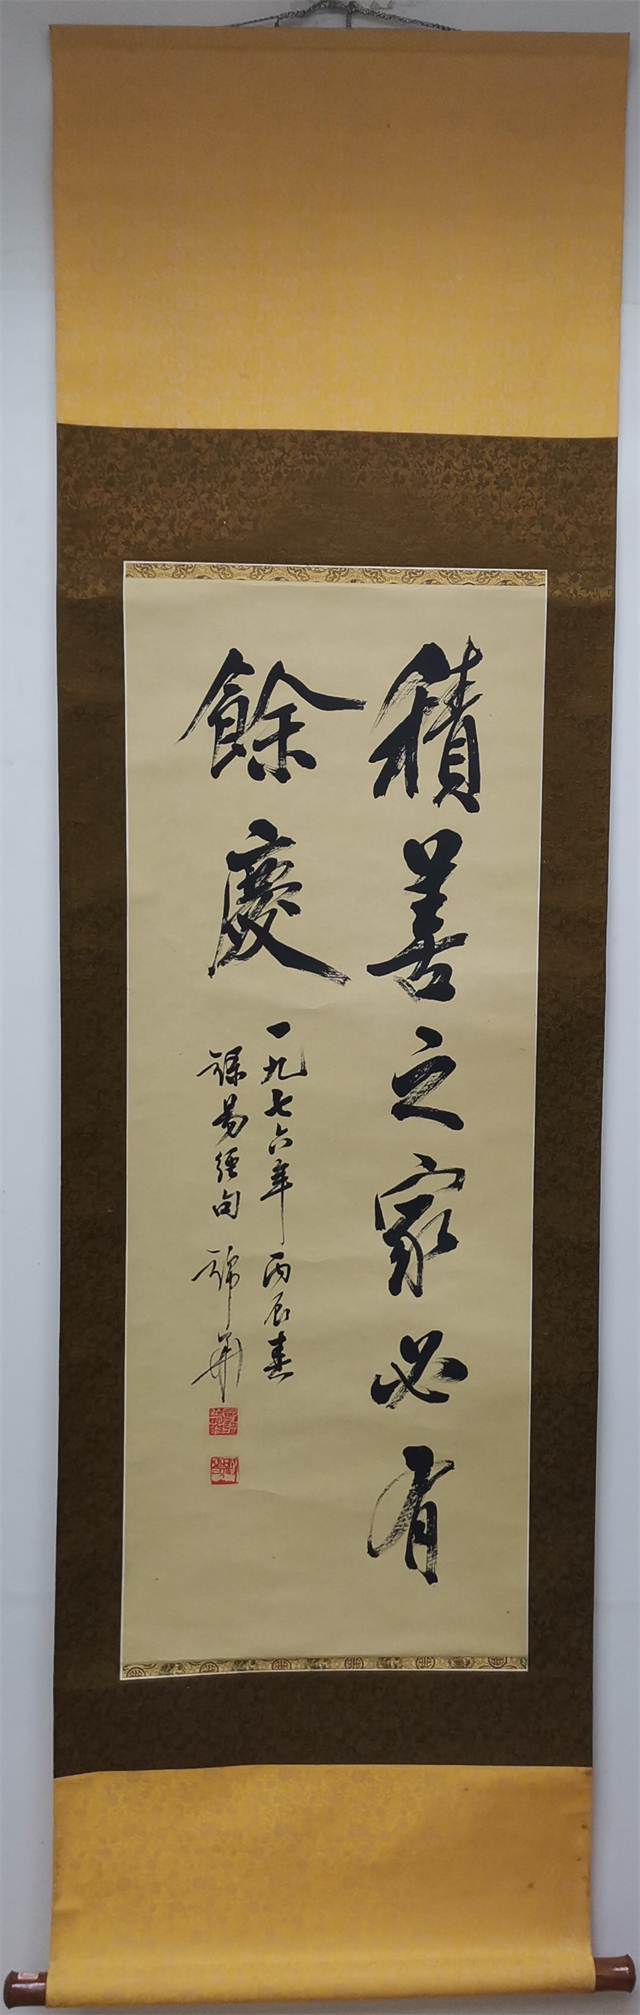 積善之家必有
餘慶
一九七六年丙辰春
錄易經句